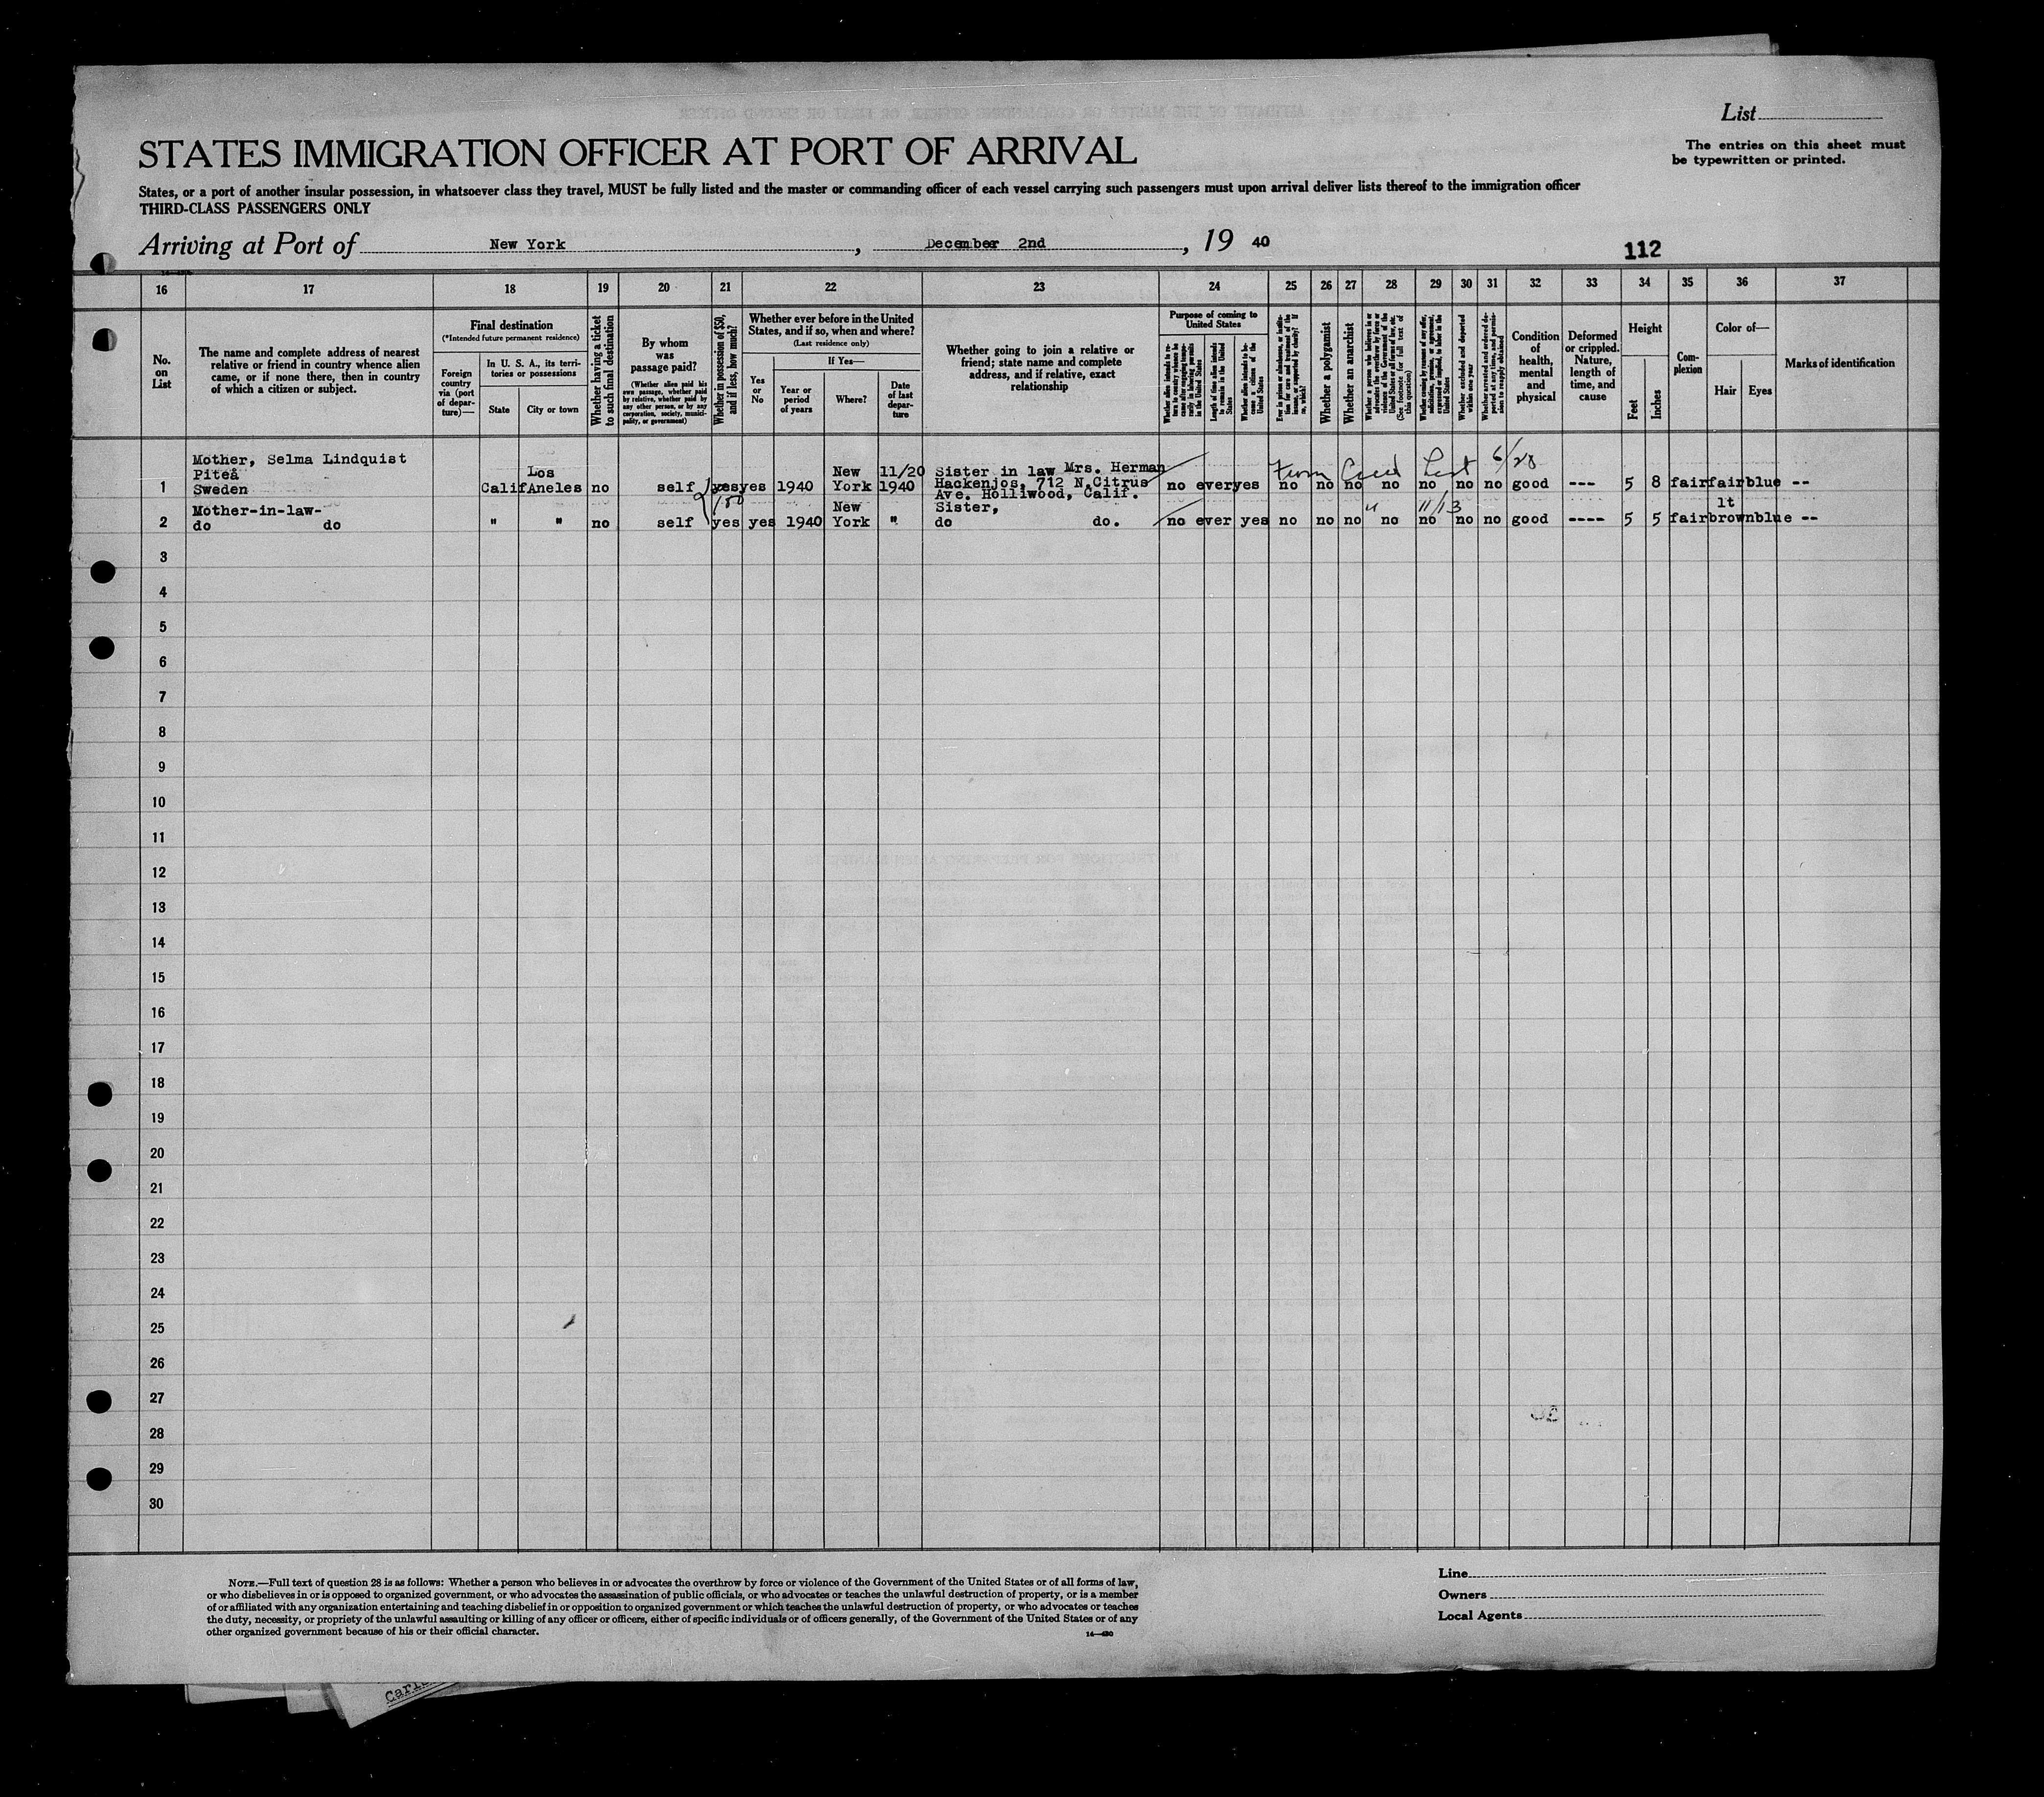 List
STATES IMMIGRATION OFFICER AT PORT OF ARRIVAL
The entries on this sheet must
be typewritten or printed.
States, or a port of another insular possession, in whatsoever class they travel, MUST be fully listed and the master or commanding officer of each vessel carrying such passengers must upon arrival deliver lists thereof to the immigration officer
THIRD-CLASS PASSENGERS ONLY
Arriving at Port of New York, December 2nd, 19 40
112
16 17 18 19 20 21 22 23 24 25 26 27 28 29 30 31 32 33 34 35 36 37
No.
on
List
The name and complete address of nearest
relative or friend in country whence alien
came, or if none there, then in country
of which a citizen or subject.
Final destination
(*Intended future permanent residence)
Foreign
country
via (port
of depar-
ture)—
In U. S. A., its terri-
tories or possessions
State
City or town
Whether having a ticket
to such final destination
By whom
was
passage paid?
(Whether alien paid his
own passage, whether paid
by relative, whether paid by
any other person, or by any
corporation, society, munici-
pality, or government)
Whether in possession of $50,
and if less, how much?
Whether ever before in the United
States, and if so, when and where?
(Last residence only)
Yes
or
No
If Yes—
Year or
period
of years
Where?
Date
of last
depar-
ture
Whether going to join a relative or
friend; state name and complete
address, and if relative, exact
relationship
Purpose of coming to
United States
Whether alien intends to re-
turn to country whence he
came after engaging tempo-
rarily in laboring pursuits
in the United States
Length of time alien intends
to remain in the United
States
Whether alien intends to be-
come a citizen of the
United States
Ever in prison or almshouse, or institu-
tion for care and treatment of the
insane, or supported by charity? If
so, which?
Whether a polygamist
Whether an anarchist
Whether a person who believes in or
advocates the overthrow by force or
violence of the Government of the
United States or all forms of law, etc.
(See footnote for full text of
this question)
Whether coming by reason of any offer,
solicitation, promise, or agreement,
expressed or implied, to labor in the
United States
Whether excluded and deported
within one year
Whether arrested and ordered de-
ported at any time, and permis-
sion to reapply obtained
Condition
of
health,
mental
and
physical
Deformed
or crippled.
Nature,
length of
time, and
cause
Height
Feet
Inches
Com-
plexion
Color of—
Hair
Eyes
Marks of identification
Mother, Selma Lindquist
Piteå Los New 11/20 Sister in law Mrs. Herman 6/28
1 Sweden Calif Aneles no self yes yes 1940 York 1940 Hackenjos, 712 N.Citrus no ever yes no no no no no no no good --- 5 8 fair fair blue --
Ave. Holliwood, Calif.
Mother-in-law- 150 New Sister, " 11/13 lt
2 do do " " no self yes yes 1940 York " do do. no ever yes no no no no no no no good ---- 5 5 fair brown blue --
3
4
5
6
7
8
9
10
11
12
13
14
15
16
17
18
19
20
21
22
23
24
25
26
27
28
29
30
NOTE.—Full text of question 28 is as follows: Whether a person who believes in or advocates the overthrow by force or violence of the Government of the United States or of all forms of law,
or who disbelieves in or is opposed to organized government, or who advocates the assassination of public officials, or who advocates or teaches the unlawful destruction of property, or is a member
of or affiliated with any organization entertaining and teaching disbelief in or opposition to organized government or which teaches the unlawful destruction of property, or who advocates or teaches
the duty, necessity, or propriety of the unlawful assaulting or killing of any officer or officers, either of specific individuals or of officers generally, of the Government of the United States or of any
other organized government because of his or their official character.
Line
Owners
Local Agents